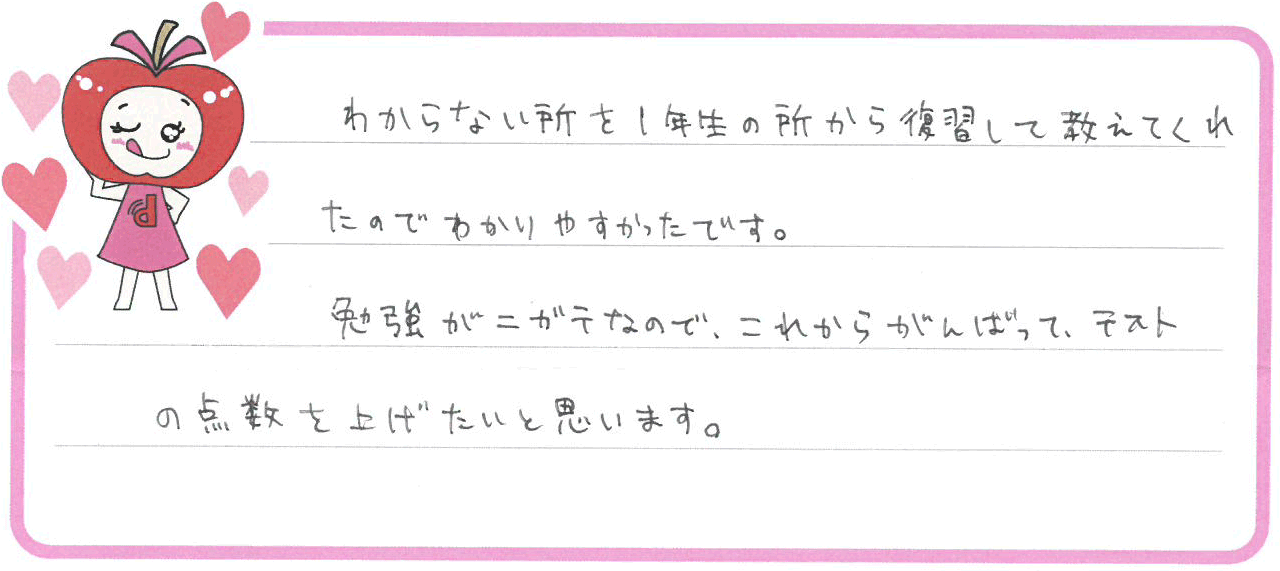 わからない所を1年生の所から復習して教えてくれ
たのでわかりやすかったです。
勉強がニガテなので、これからがんばって、テスト
の点数を上げたいと思います。